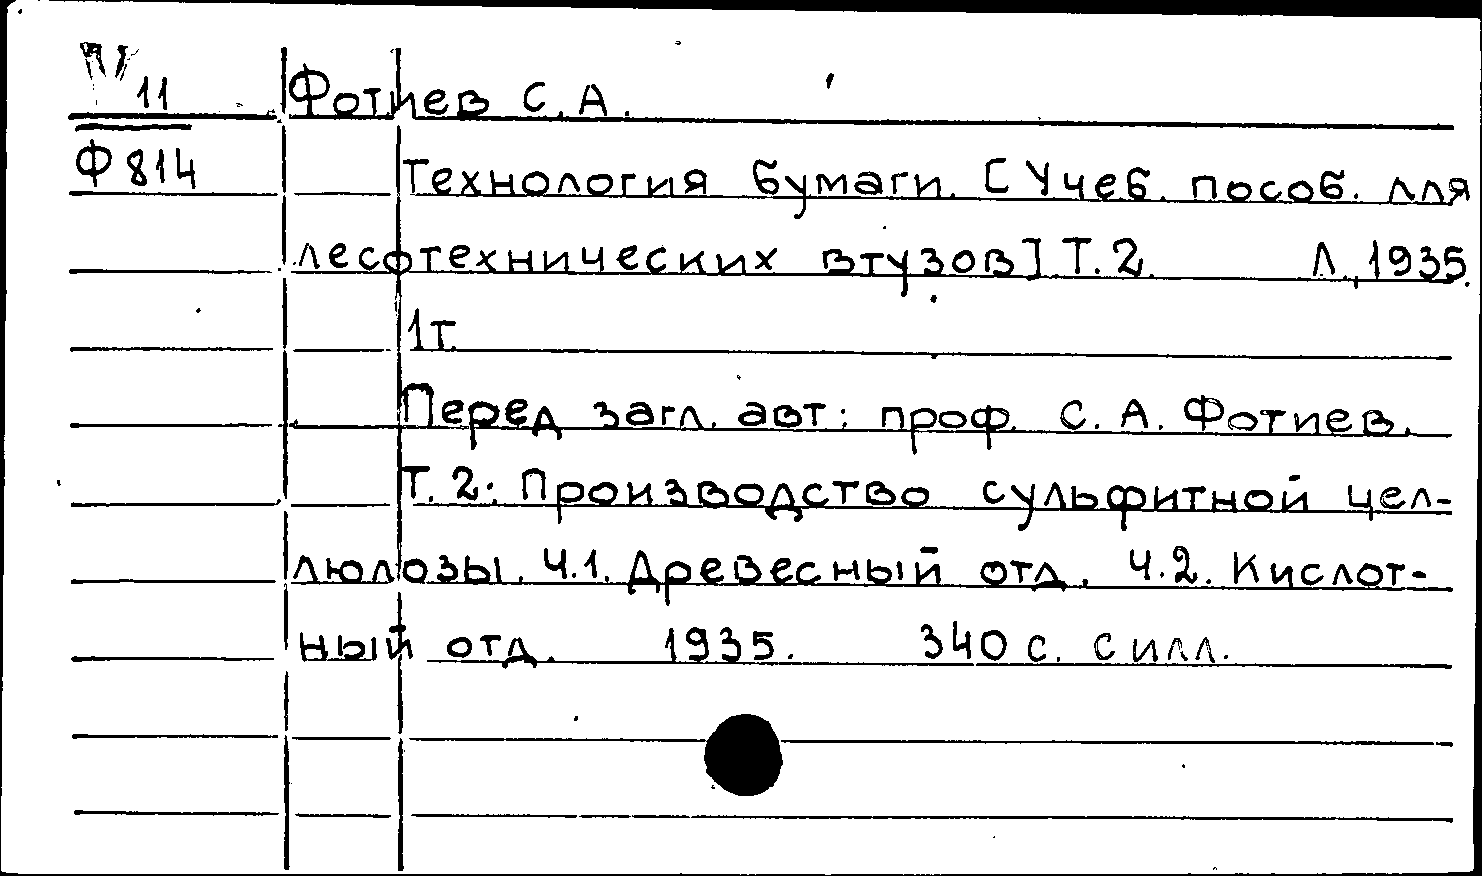 11
Ф814
Фотиев С. А.
Технология бумаги. [Учеб. пособ. для
лесотехнических втузов] Т. 2. Л., 1935.
1т.
Перед загл. авт: проф. С. А. Фотиев.
Т. 2: Производство сульфитной цел-
люлозы. Ч.1. Древесный отд. Ч.2. Кислот-
ный отд. 1935. 340 с. с илл.